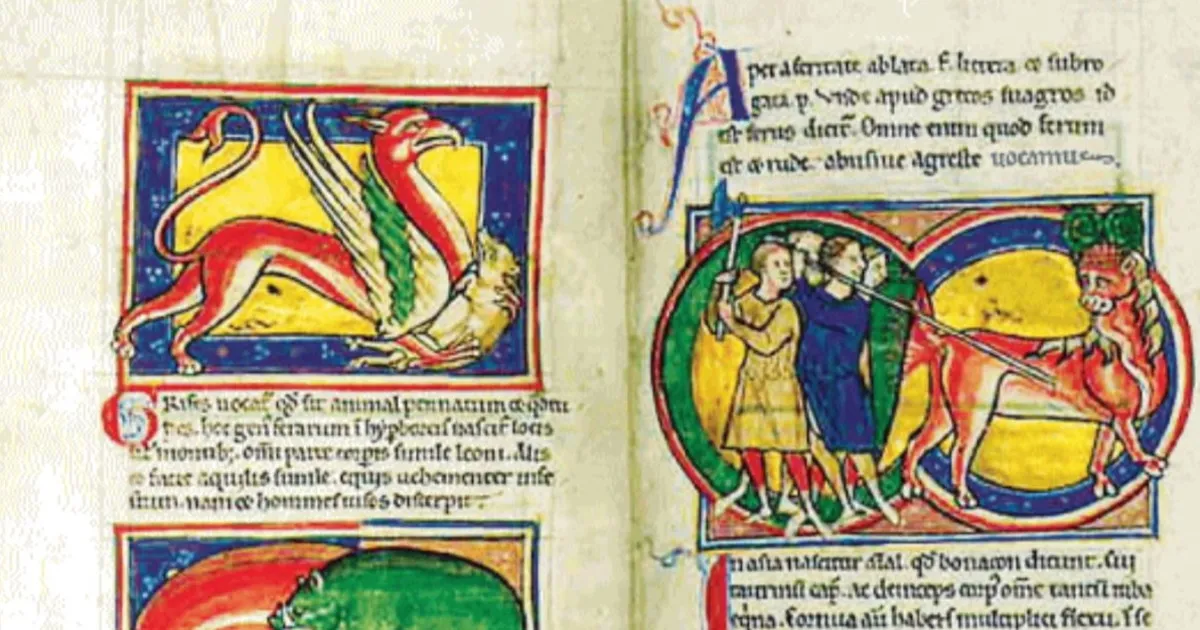 Grifes uocat͛ qd̄ sit animal pennatum ⁊ qdru
pes. hoc gen͛ ferarum ī hyꝑboreis nascit͛ locis
ut̄ montib;. om̄i parte corꝑis simile leoni. Alis
⁊ facie aquilis simile. equis uehementer infe
stum. nam ⁊ homines uisos discerpit.
A per aferitate ablata. f. littera ⁊ subro
gata. p. Vnde apud grecos suagros id
est ferus dicit͛. Omne enim quod ferum
est ⁊ rude. abusiue agreste uocamus.
In asia nascitur aīal. qd̄ bonacon dicunt. Cui
taurinū cap̄. ac deinceps corp͛ om̄e tantū iuba
eq̄na. Cornua aū habet multiplici flexu. ī se